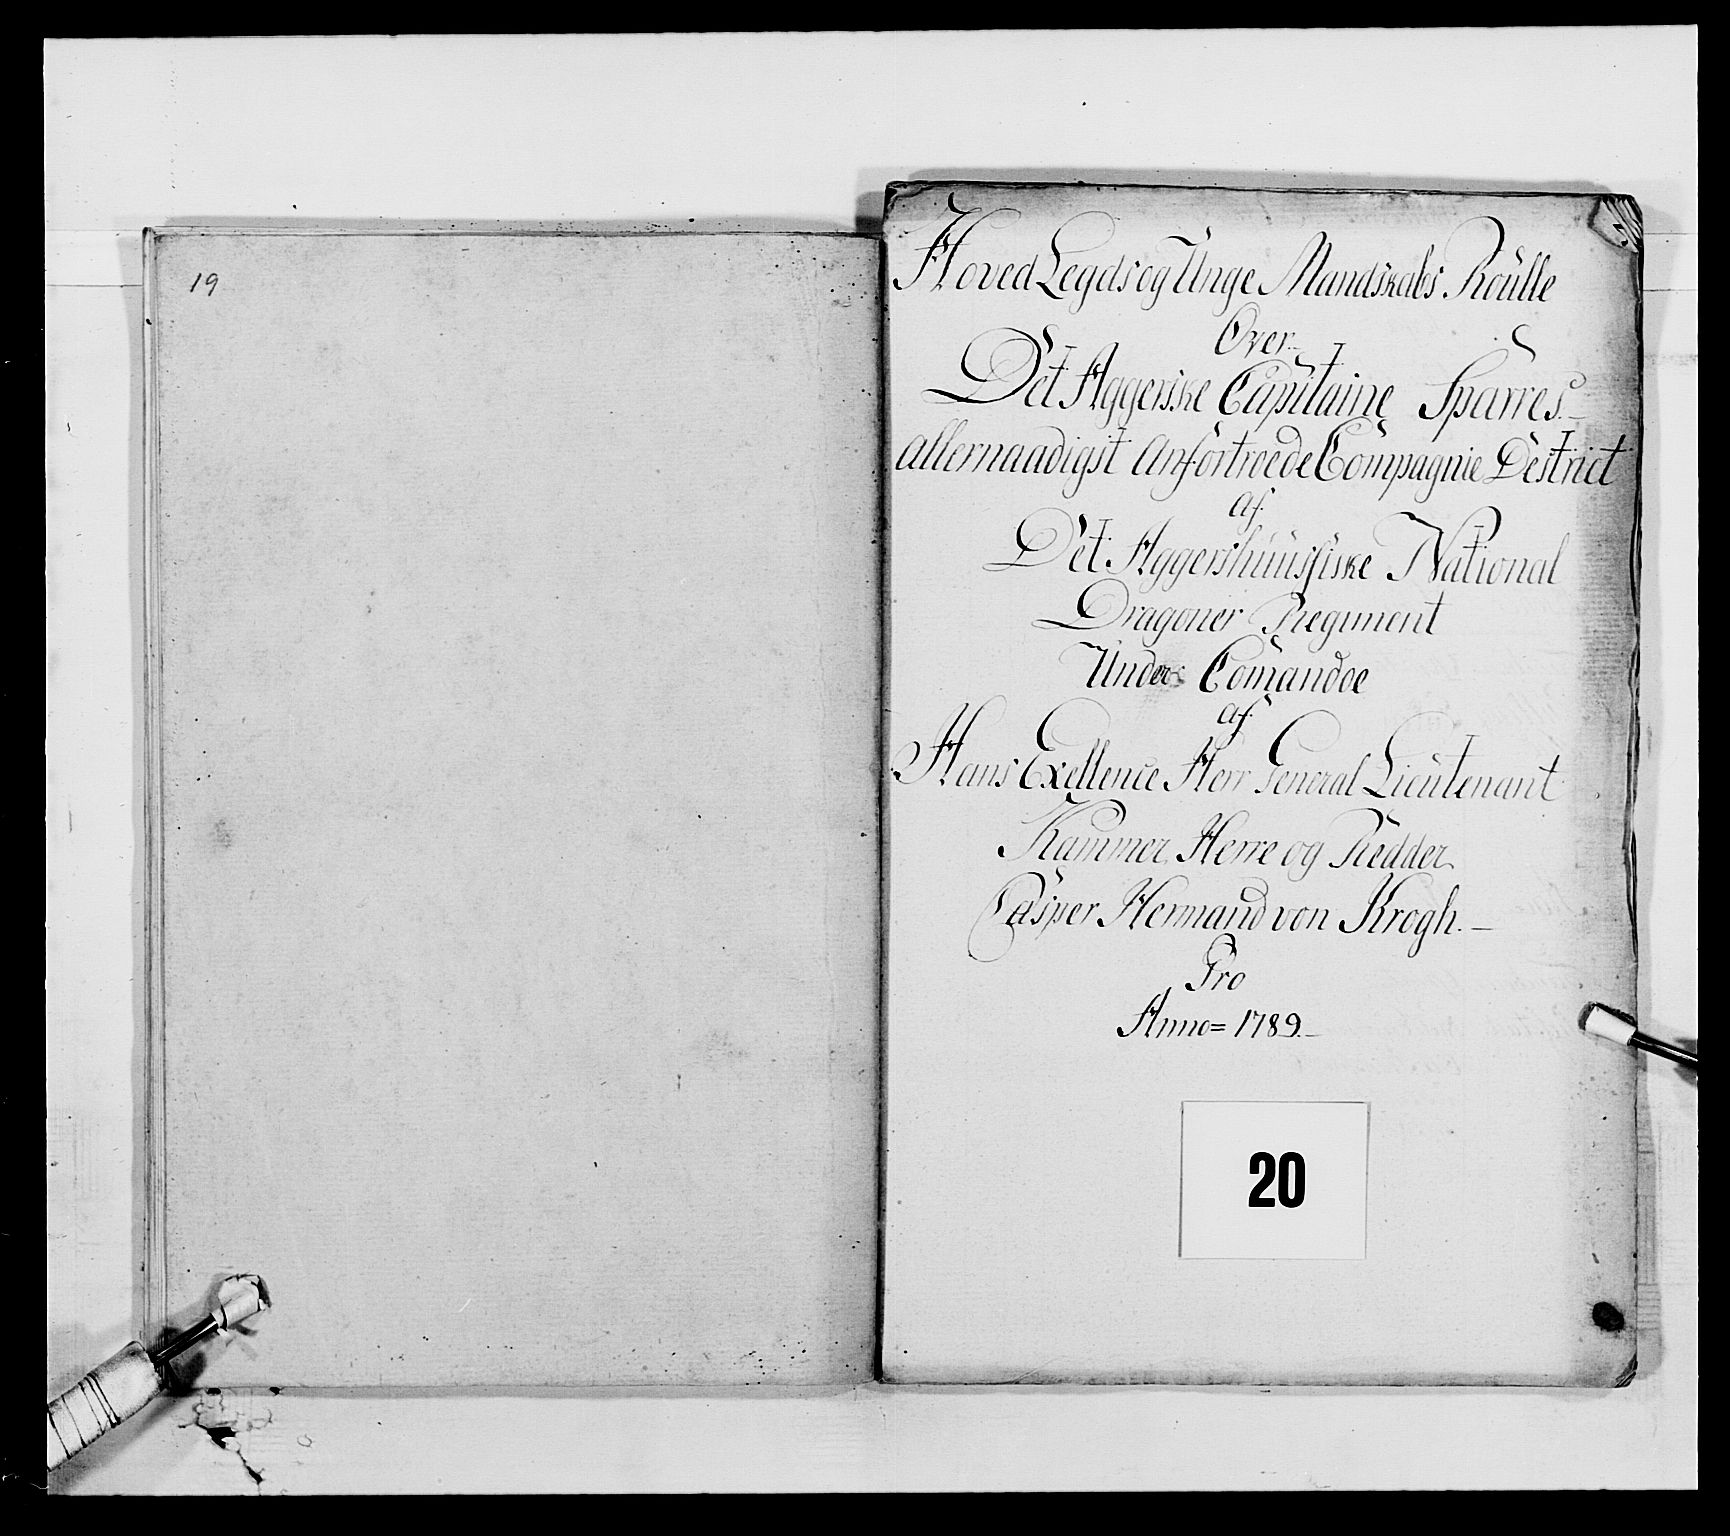 19
Hoved Legds og Unge Mandskabs Roulle
Over
Det Aggerske Capitaine Sparres
allernaadigst Anfortroede Compagnie District
af
Det Aggershuusiske National
Dragoner Regiment
Under Comandoe
af
Hans Exellence Herr General Lieutenant
Kammer Herre og Redder
Casper Hermand von Krogh.
Pro
Anno= 1789.
20